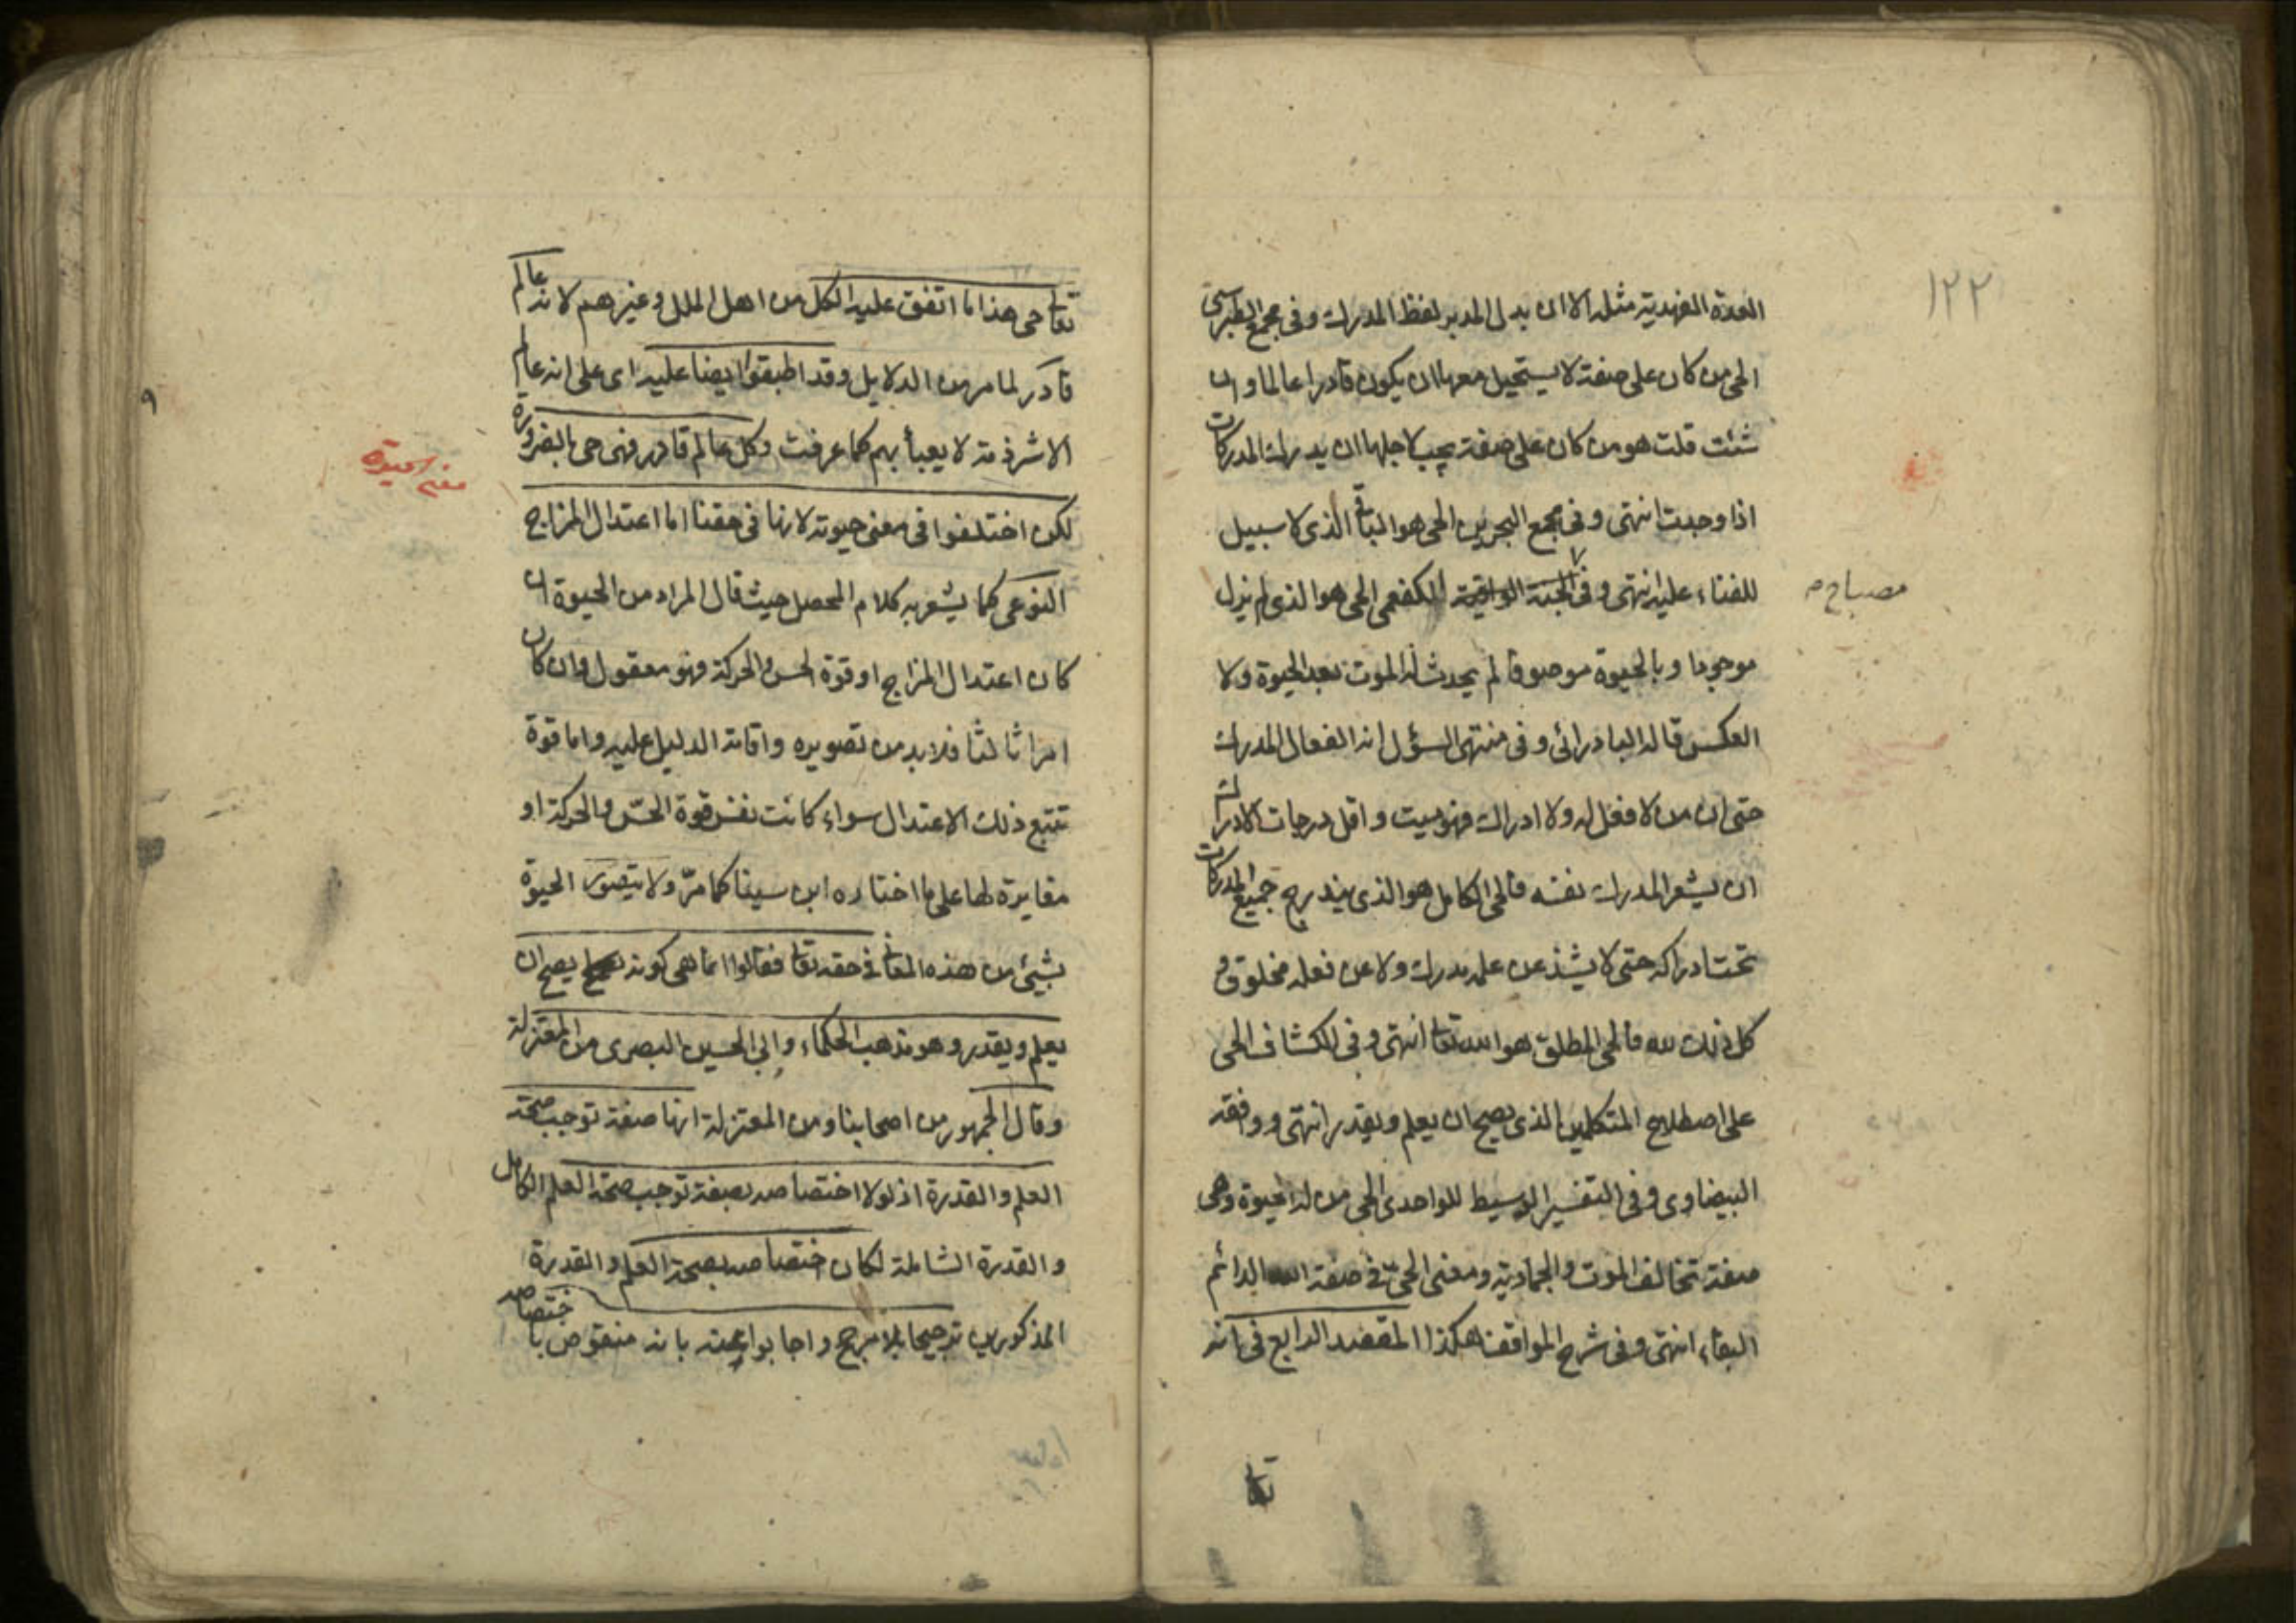 ١٢٢
العدة الفهدية مثله الا ان بدل المدبر لفظ المدرك وفى مجمع الطبرسى
الحى من كان على صفة لا يستحيل معها ان يكون قادرا عالما وان
شئت قلت هو من كان على صفة يجب لاجلها ان يدرك المدركات
اذا وجدت انتهى وفى مجمع البحرين الحى هو الباقى الذى لا سبيل
للفناء عليه انتهى وفى الجنة الواقية للكفعمى الحى هو الذى لم يزل
مصباح م
موجودا وبالحيوة موصوفا لم يحدث له الموت بعد الحيوة ولا
العكس قاله البادرائى وفى منتهى السؤل انه الفعال المدرك
حتى ان من لا فعل له ولا ادراك فهو ميت واقل درجات الادراك
ان يشعر المدرك نفسه فالحى الكامل هو الذى يندرج جميع المدركات
تحت ادراكه حتى لا يشذ عن علمه مدرك ولا عن فعله مخلوق و
كل ذلك لله فالحى المطلق هو الله تعا انتهى وفى الكشاف الحى
على اصطلاح المتكلمين الذى يصح ان يعلم ويقدر انتهى ووافقه
البيضاوى وفى التفسير الوسيط للواحدى الحى من له الحيوة وهى
صفة تخالف الموت والجمادية ومعنى الحى فى صفة الله الدائم
البقاء انتهى وفى شرح المواقف هكذا المقصد الرابع فى انه
تعا
تعا حى هذا ما اتفق عليه الكل من اهل الملل وغيرهم لانه عالم
قادر لما مر من الدلايل وقد اطبقوا ايضا عليه اى على انه عالم
الا شرذمة لا يعبأ بهم كما عرفت وكل عالم قادر فهى حى بالضرورة
لكن اختلفوا فى معنى حيوته لانها فى حقنا اما اعتدال المزاج
النوعى كما يشعر به كلام المحصل حيث قال المراد من الحيوة ان
كان اعتدال المزاج او قوة الحس والحركة فهو معقول وان كان
امرا ثالثا فلا بد من تصويره واقامة الدليل عليه واما قوة
تتبع ذلك الاعتدال سواء كانت نفس قوة الحسّ والحركة او
مغايرة لها على ما اختاره ابن سينا كما مرّ ولا يتصور الحيوة
بشيئ من هذه المعانى فى حقه تعا فقالوا انما هى كونه يصح ان
يعلم ويقدر وهو مذهب الحكماء وابى الحسين البصرى من المعتزلة
وقال الجمهور من اصحابنا ومن المعتزلة انها صفة توجب صحة
العلم والقدرة اذ لولا اختصاصه بصفة توجب صحة العلم الكامل
والقدرة الشاملة لكان اختصاصه بصحة العلم والقدرة
المذكورين ترجيحا بلا مرجح واجابوا عنه بانه منقوض باختصاصه